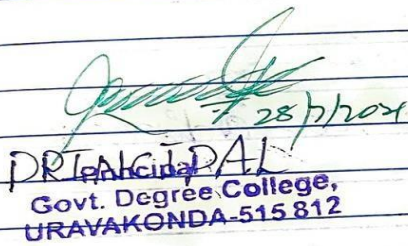 28/7/2021
PRINCIPAL
Principal
Govt. Degree College,
URAVAKONDA-515 812